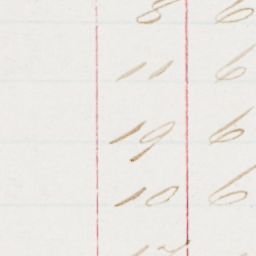 8 6
11 6
19 6
10 6